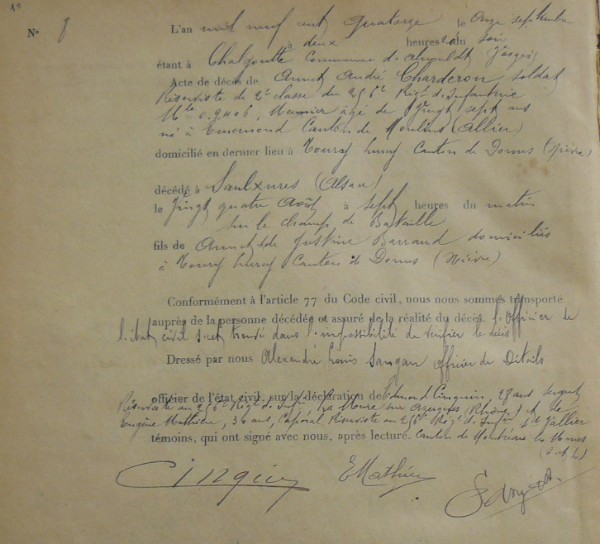 N° 8 L'an mil neuf cent quatorze le onze septembre
à deux heures du soir
étant à Chalgoutte Commune d' (Vosges)
Acte de décès de Annet André Charderon soldat
Réserviste de 2e classe du 256e Régt d'Infanterie
Mle 09406, Meunier âgé de Vingt sept ans
né à Canton de Moulins (Allier)
domicilié en dernier lieu à Toury Lurcy Canton de Dornes (Nièvre)
décédé à Saulxures (Alsace)
le Vingt quatre Août à sept heures du matin
sur le champ de Bataille
fils de Annet et de Justine Barraud domiciliés
à Toury Lurcy Canton de Dornes (Nièvre)
Conformément à l'article 77 du Code civil, nous nous sommes transporté
auprès de la personne décédée et assuré de la réalité du décès. L'officier de
l'état civil s'est trouvé dans l'impossibilité de vérifier le décès
Dressé par nous Alexandre Louis officier de Détails
officier de l'état civil, sur la déclaration de Edmond Cinquin, 28 ans, sergent
Réserviste au 256e Régt d'Infie, sur Azergues (Rhône) et de
Eugène Mathieu, 30 ans, Caporal Réserviste au 256e Régt d'Infie St Vallier
témoins, qui ont signé avec nous, après lecture. Canton de Montceau les Mines
(S. et L.)
Cinquin EMathieu